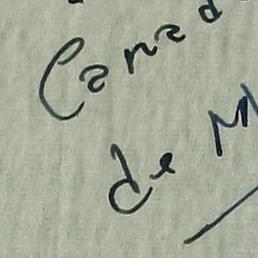 Canad
de M